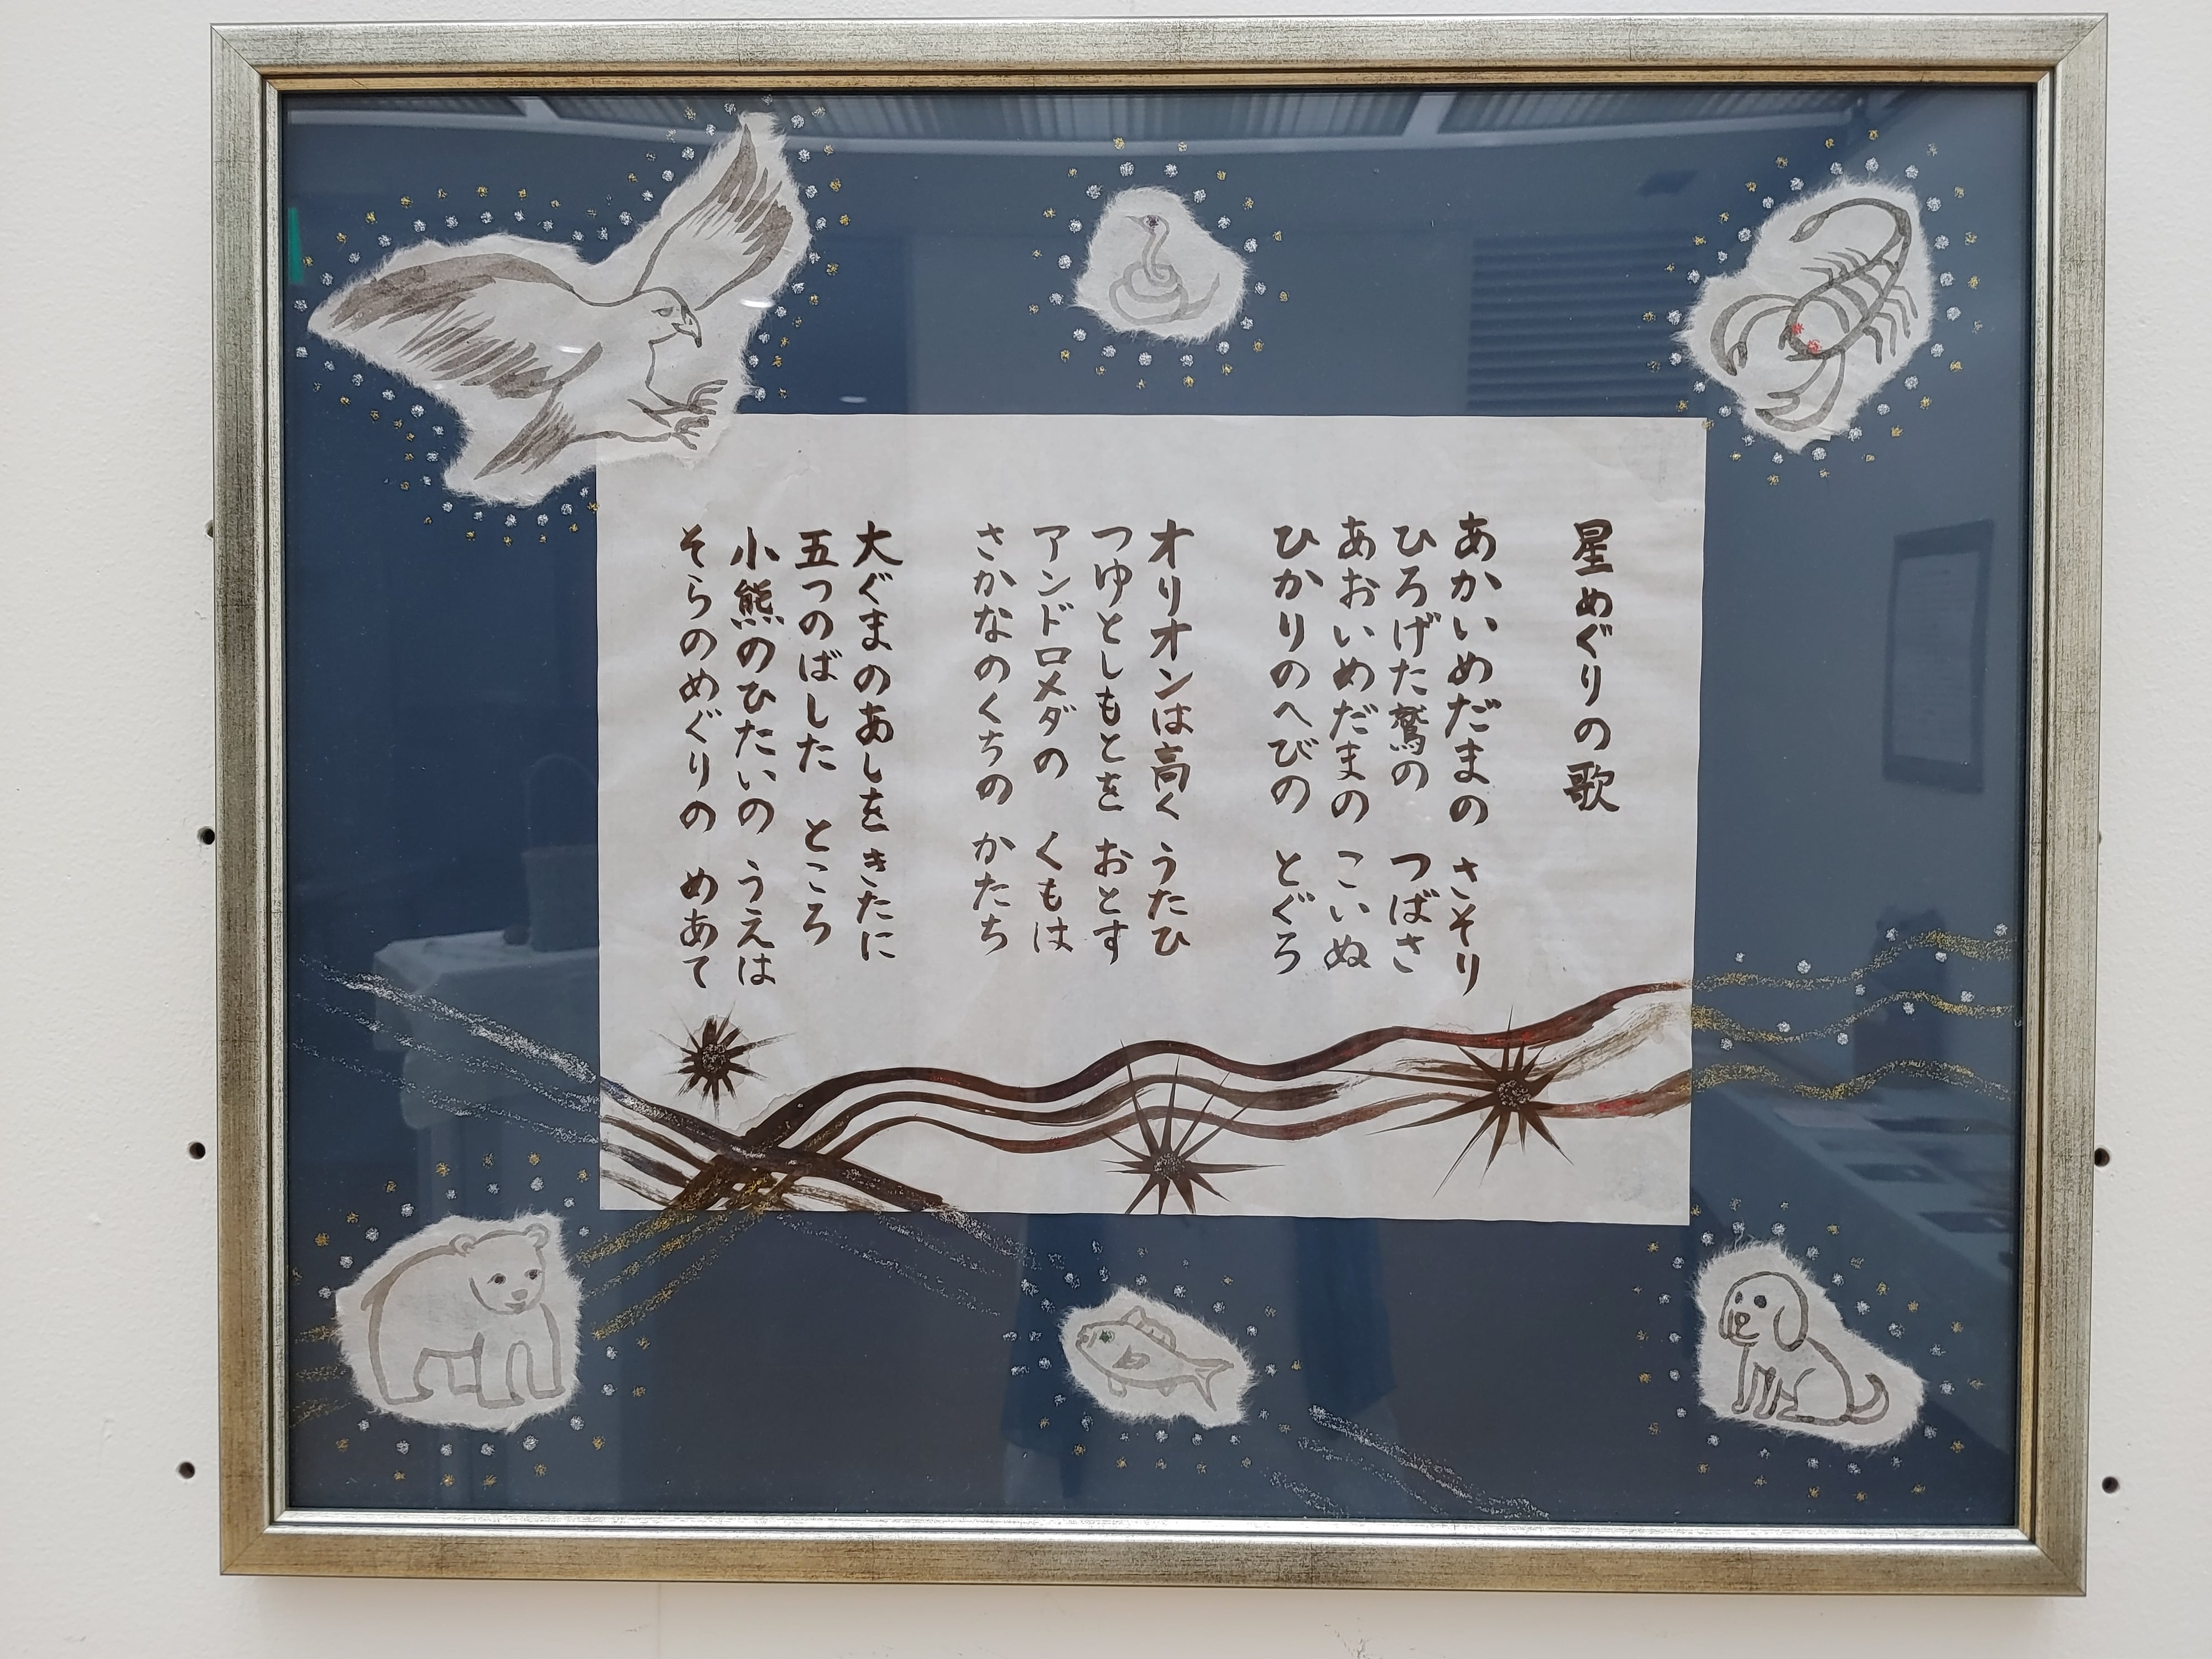 星めぐりの歌
あかいめだまの さそり
ひろげた鷲の つばさ
あおいめだまの こいぬ
ひかりのへびの とぐろ
オリオンは高く うたひ
つゆとしもとを おとす
アンドロメダの くもは
さかなのくちの かたち
大ぐまのあしを きたに
五つのばした ところ
小熊のひたいの うえは
そらのめぐりの めあて